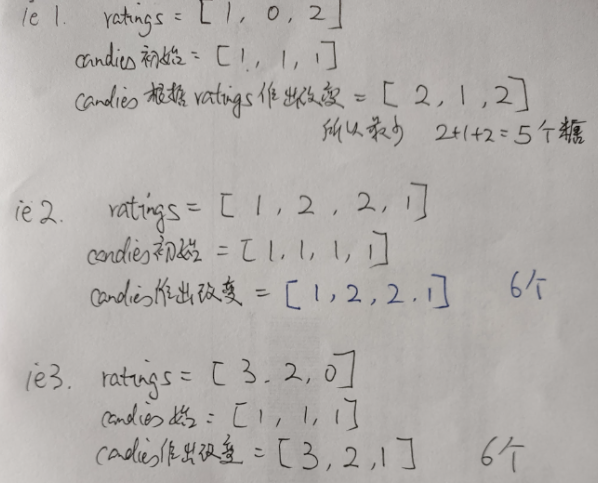 ie 1. ratings = [1, 0, 2]
candies初始 = [1, 1, 1]
candies 根据 ratings作出改变 = [2, 1, 2]
所以最少 2+1+2=5个糖
ie 2. ratings = [1, 2, 2, 1]
candies初始 = [1, 1, 1, 1]
candies作出改变 = [1, 2, 2, 1] 6个
ie3. ratings = [3. 2, 0]
candies始 = [1, 1, 1]
candies作出改变 = [3, 2, 1] 6个